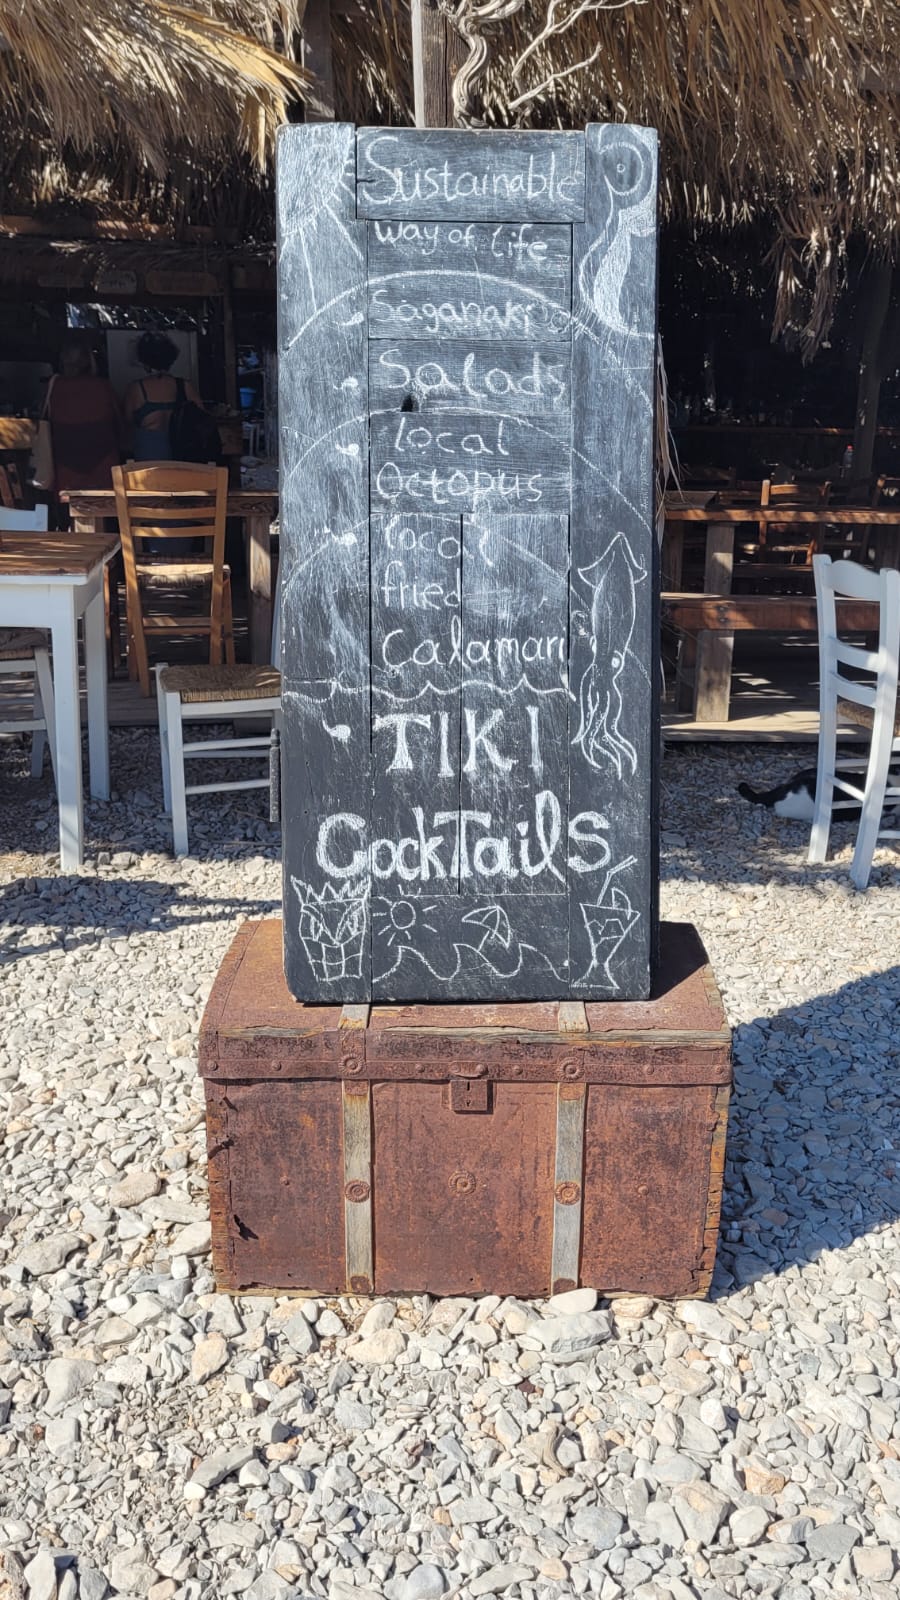 Sustainable
way of life
Saganaki
Salads
local
Octopus
local
fried
Calamari
TIKI
CockTails